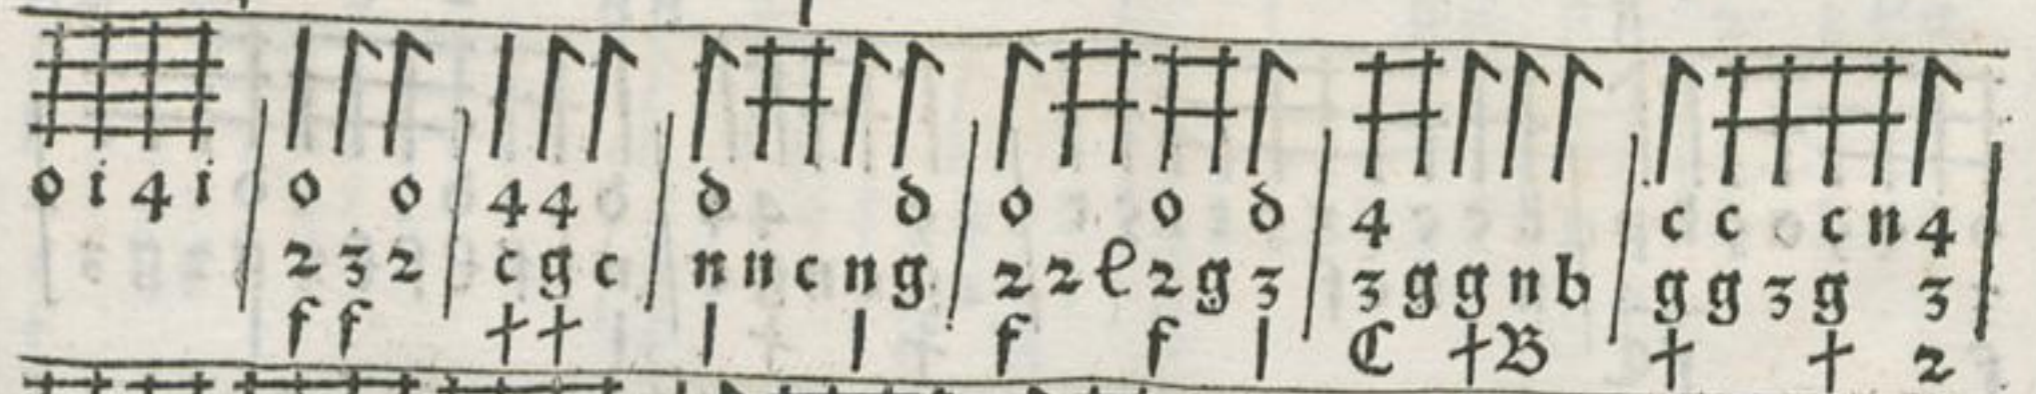 o i 4 i | o o | 4 4 | d d | o o d | 4 | c c c n 4 |
2 3 2 | c g c | n n c n g | 2 2 e 2 g 3 | 3 g g n b | g g 3 g 3
f f | † † | l l | f f l | C † B | † † 2